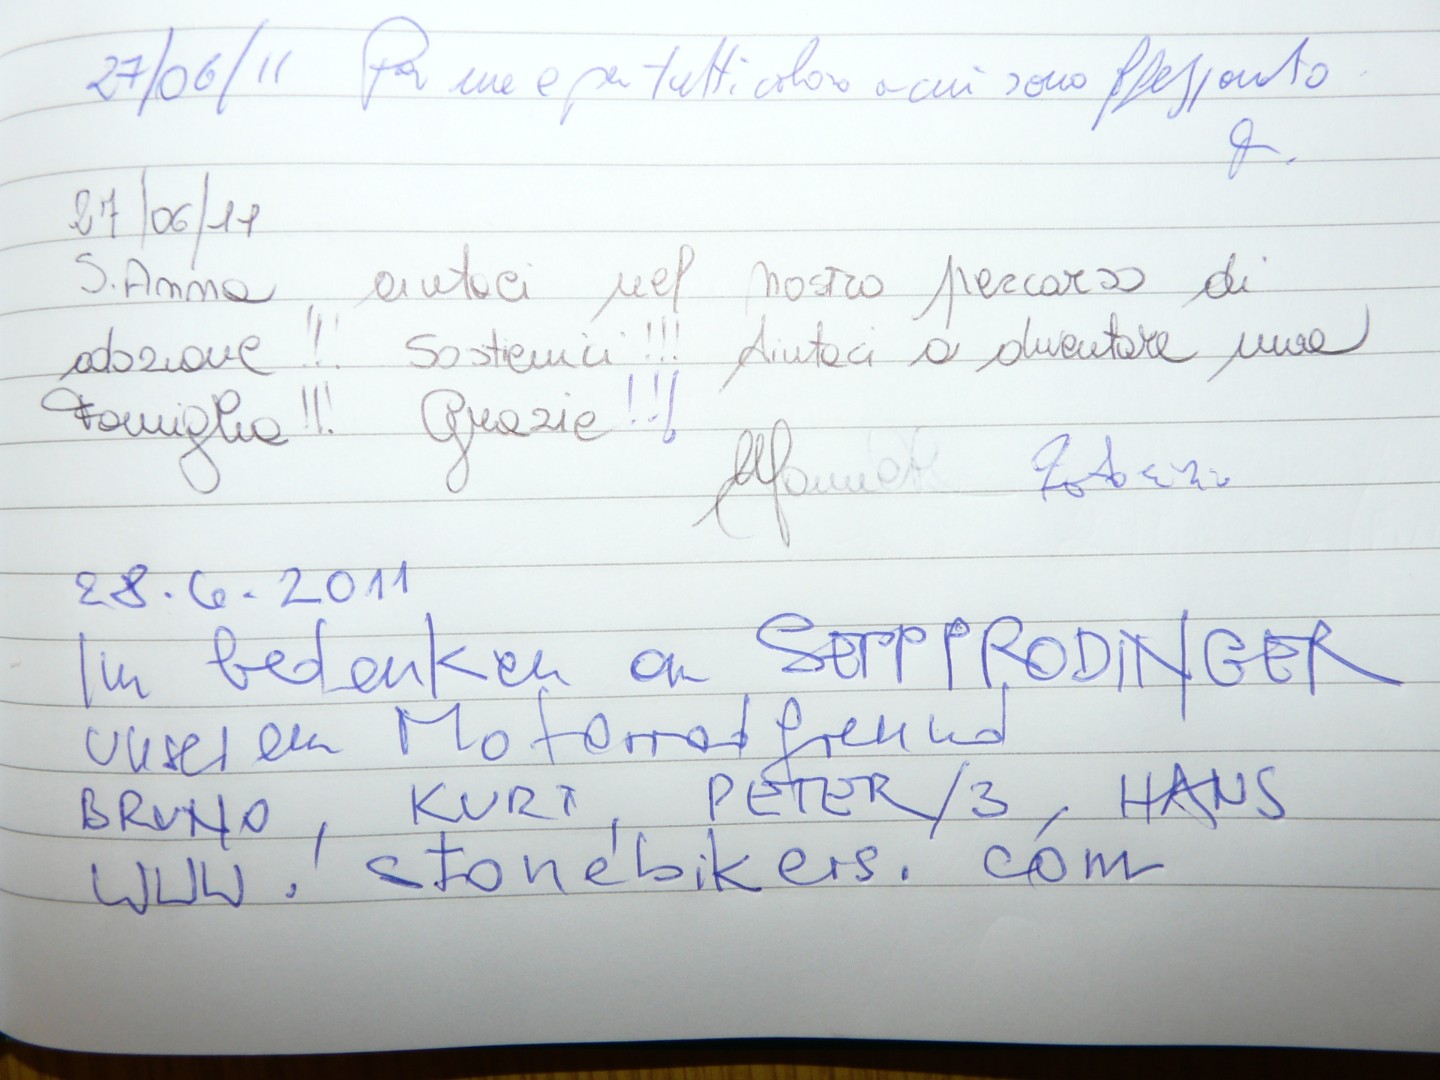 27/06/11 Per me e per tutti coloro a cui sono
27/06/11
S. Anna, aiutaci nel nostro percorso di
adozione!!! Sostienici!!! Aiutaci a diventare una
Famiglia!!! Grazie!!!
28.6.2011
Im bedenken an SEPP PRODINGER
unseren Motorradfreund
BRUNO, KURT, PETER/3, HANS
WWW. stonebikers.com